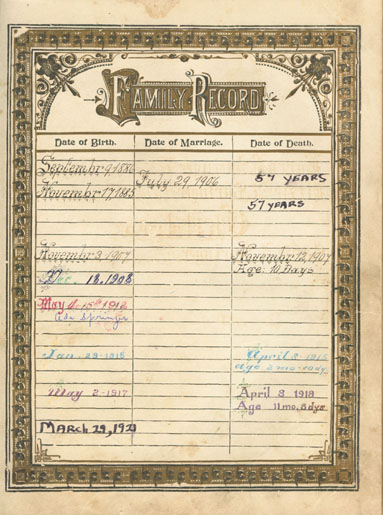 FAMILY RECORD
Date of Birth. Date of Marriage. Date of Death.
Septembr 9 1880
July 29 1906 57 YEARS
Novembr 17 1883
57 YEARS
Novembr 3 1907 Novembr 12, 1907
Age. 10 Days
Dec. 18, 1908
May 15th 1912
Ada Springer
Jan. 29-1915 April 2-1915
age 2 mo-
May 2-1917 April 8 1918
Age 11 mo. 6 dys.
MARCH 29, 1921